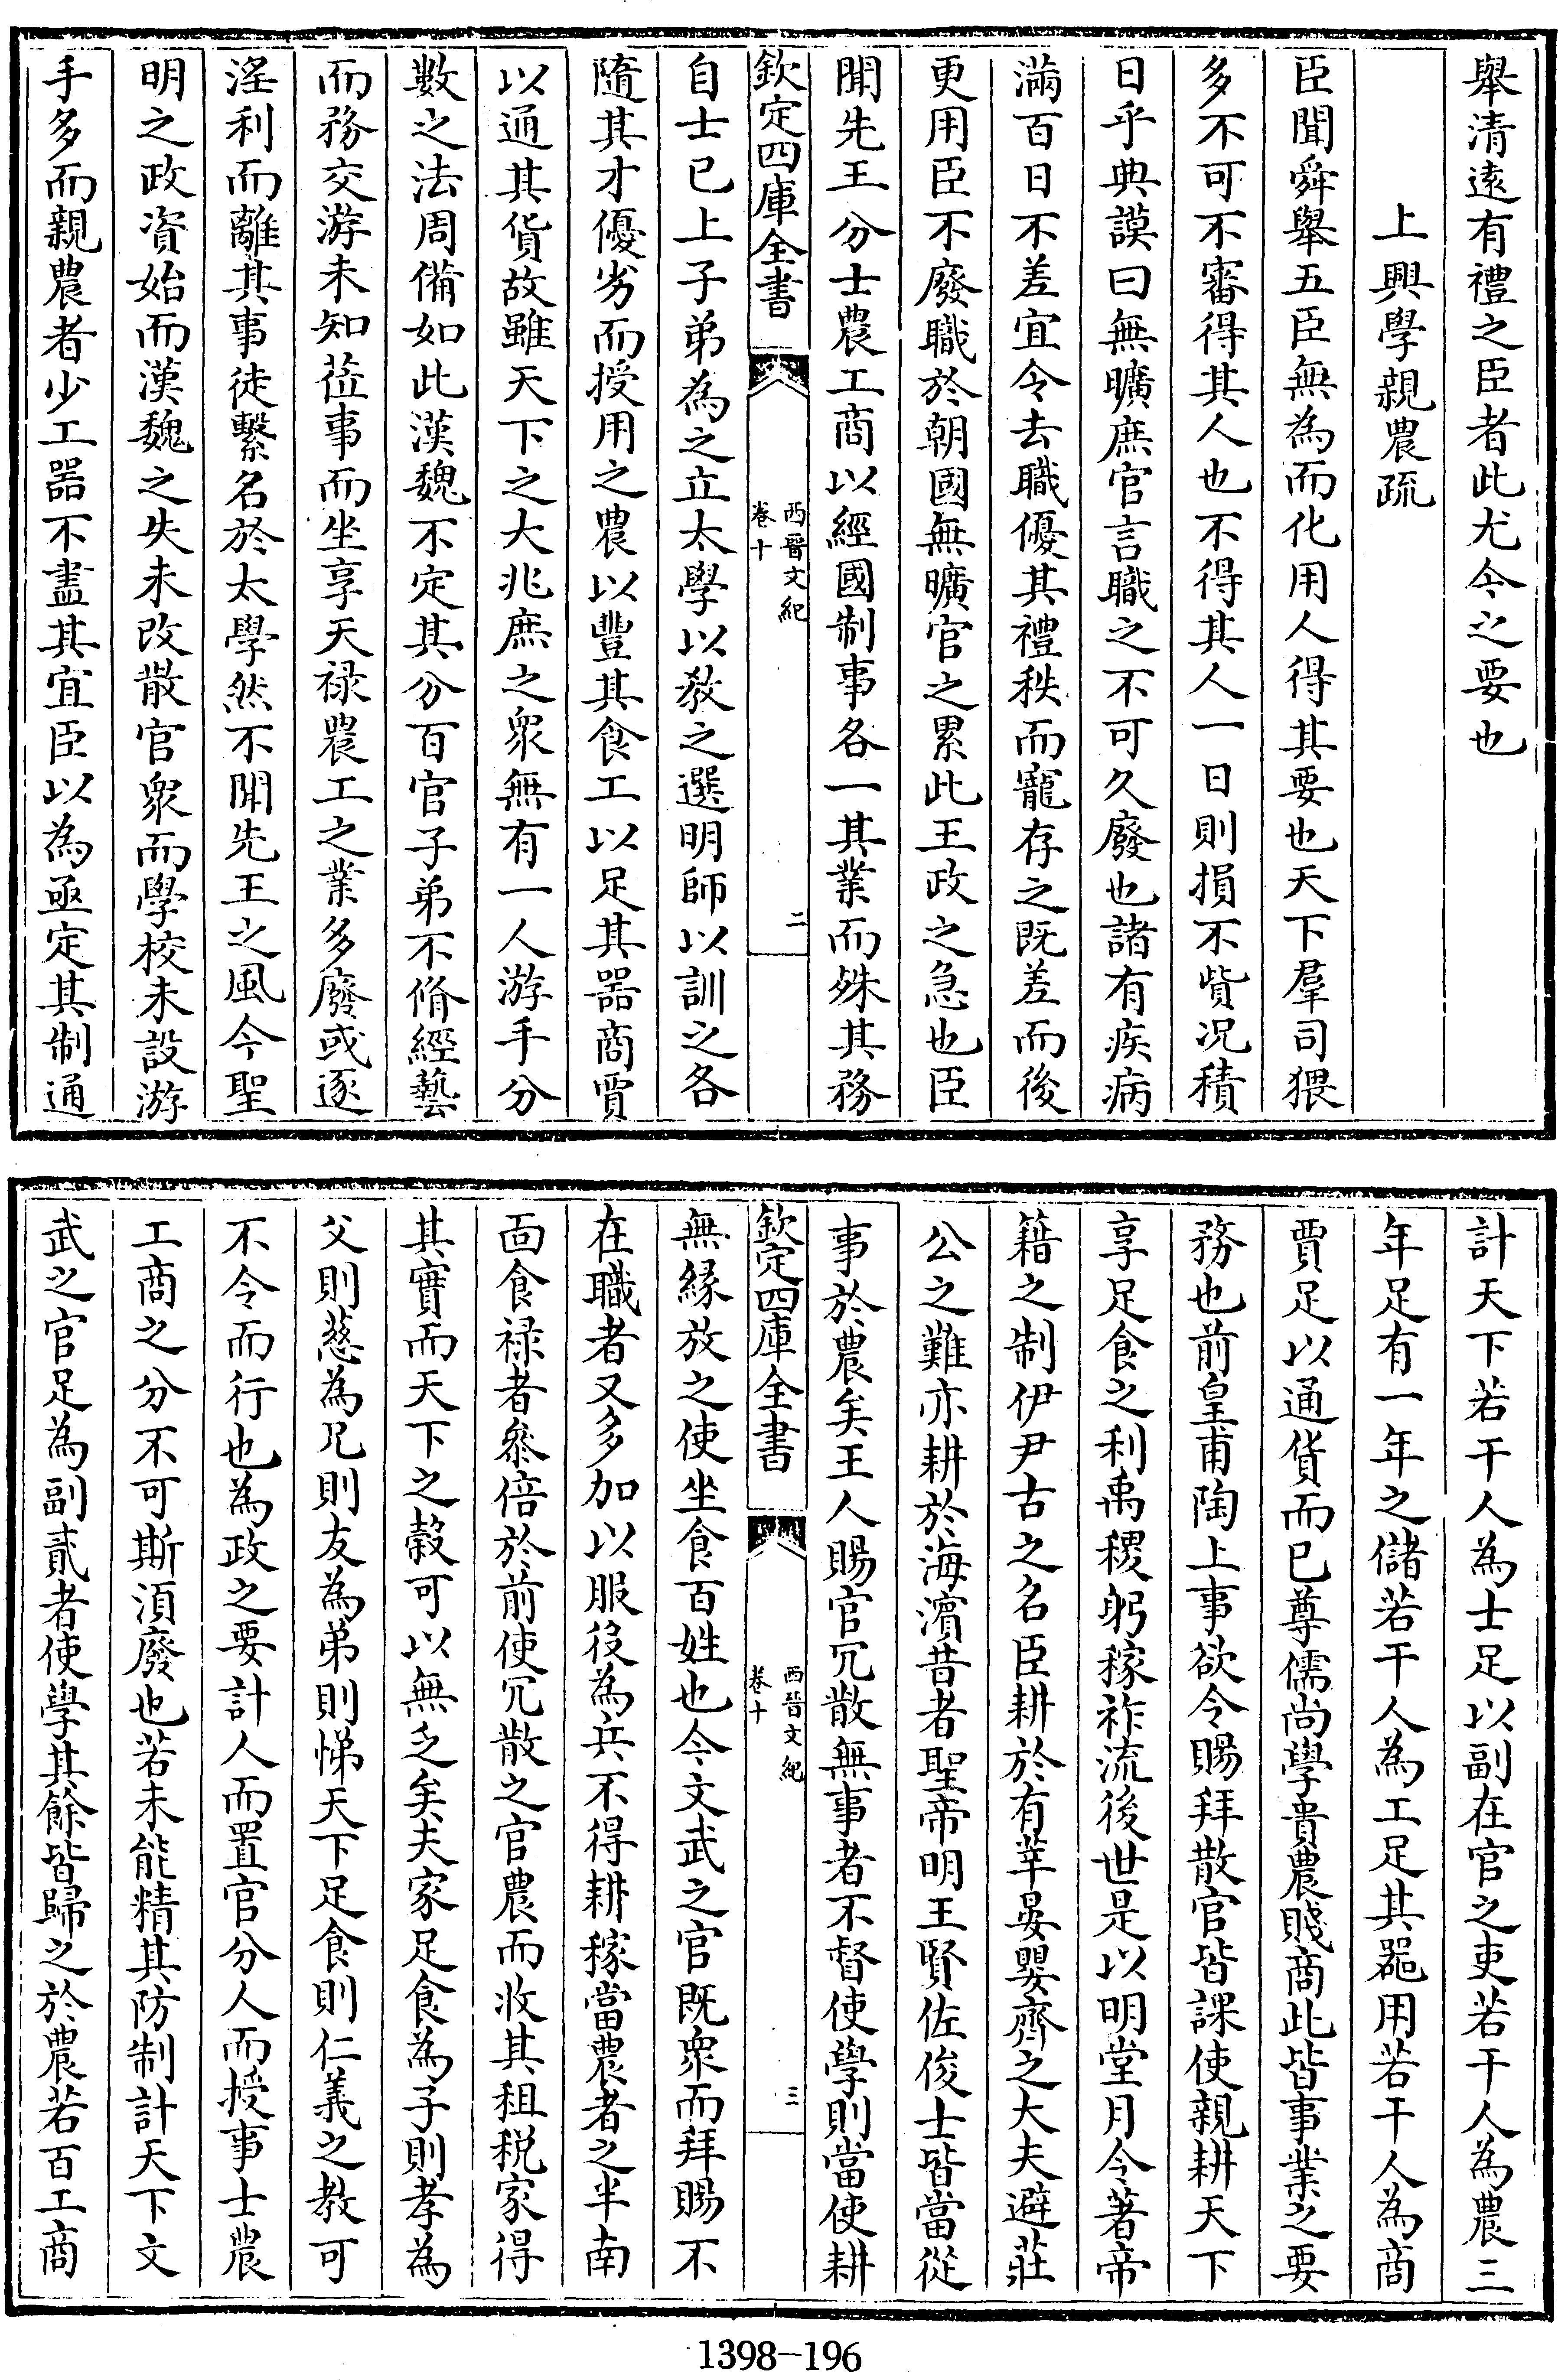 舉清遠有禮之臣者此尤今之要也
上興學親農疏
臣聞舜舉五臣無為而化用人得其要也天下羣司猥
多不可不審得其人也不得其人一日則損不貲况積
日乎典謨曰無曠庶官言職之不可久廢也諸有疾病
滿百日不差宜令去職優其禮秩而寵存之既差而後
更用臣不廢職於朝國無曠官之累此王政之急也臣
聞先王分士農工商以經國制事各一其業而殊其務
欽定四庫全書
西晉文紀
卷十
二
自士已上子弟為之立太學以教之選明師以訓之各
隨其才優劣而授用之農以豐其食工以足其器商賈
以通其貨故雖天下之大兆庶之衆無有一人游手分
數之法周備如此漢魏不定其分百官子弟不脩經藝
而務交游未知莅事而坐享天禄農工之業多廢或逐
淫利而離其事徒繫名於太學然不聞先王之風今聖
明之政資始而漢魏之失未改散官衆而學校未設游
手多而親農者少工器不盡其宜臣以為亟定其制通
計天下若干人為士足以副在官之吏若干人為農三
年足有一年之儲若干人為工足其器用若干人為商
賈足以通貨而已尊儒尚學貴農賤商此皆事業之要
務也前皇甫陶上事欲令賜拜散官皆課使親耕天下
享足食之利禹稷躬稼祚流後世是以明堂月令著帝
籍之制伊尹古之名臣耕於有莘晏嬰齊之大夫避莊
公之難亦耕於海濱昔者聖帝明王賢佐俊士皆當從
事於農矣王人賜官冗散無事者不督使學則當使耕
欽定四庫全書
西晉文紀
卷十
三
無緣放之使坐食百姓也今文武之官既衆而拜賜不
在職者又多加以服役為兵不得耕稼當農者之半南
面食禄者叅倍於前使冗散之官農而收其租税家得
其實而天下之穀可以無乏矣夫家足食為子則孝為
父則慈為兄則友為弟則悌天下足食則仁義之教可
不令而行也為政之要計人而置官分人而授事士農
工商之分不可斯湏廢也若未能精其防制計天下文
武之官足為副貳者使學其餘皆歸之於農若百工商
1398-196